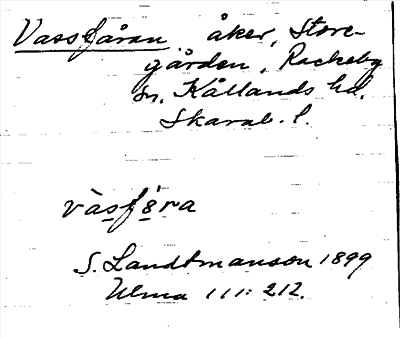 Vassfåran åker, Store-
gården, Rackeby
sn. Kållands hd.
Skarab. l.
vàsf̣ọ́ra
S. Landtmanson 1899
Ulma 111: 212.